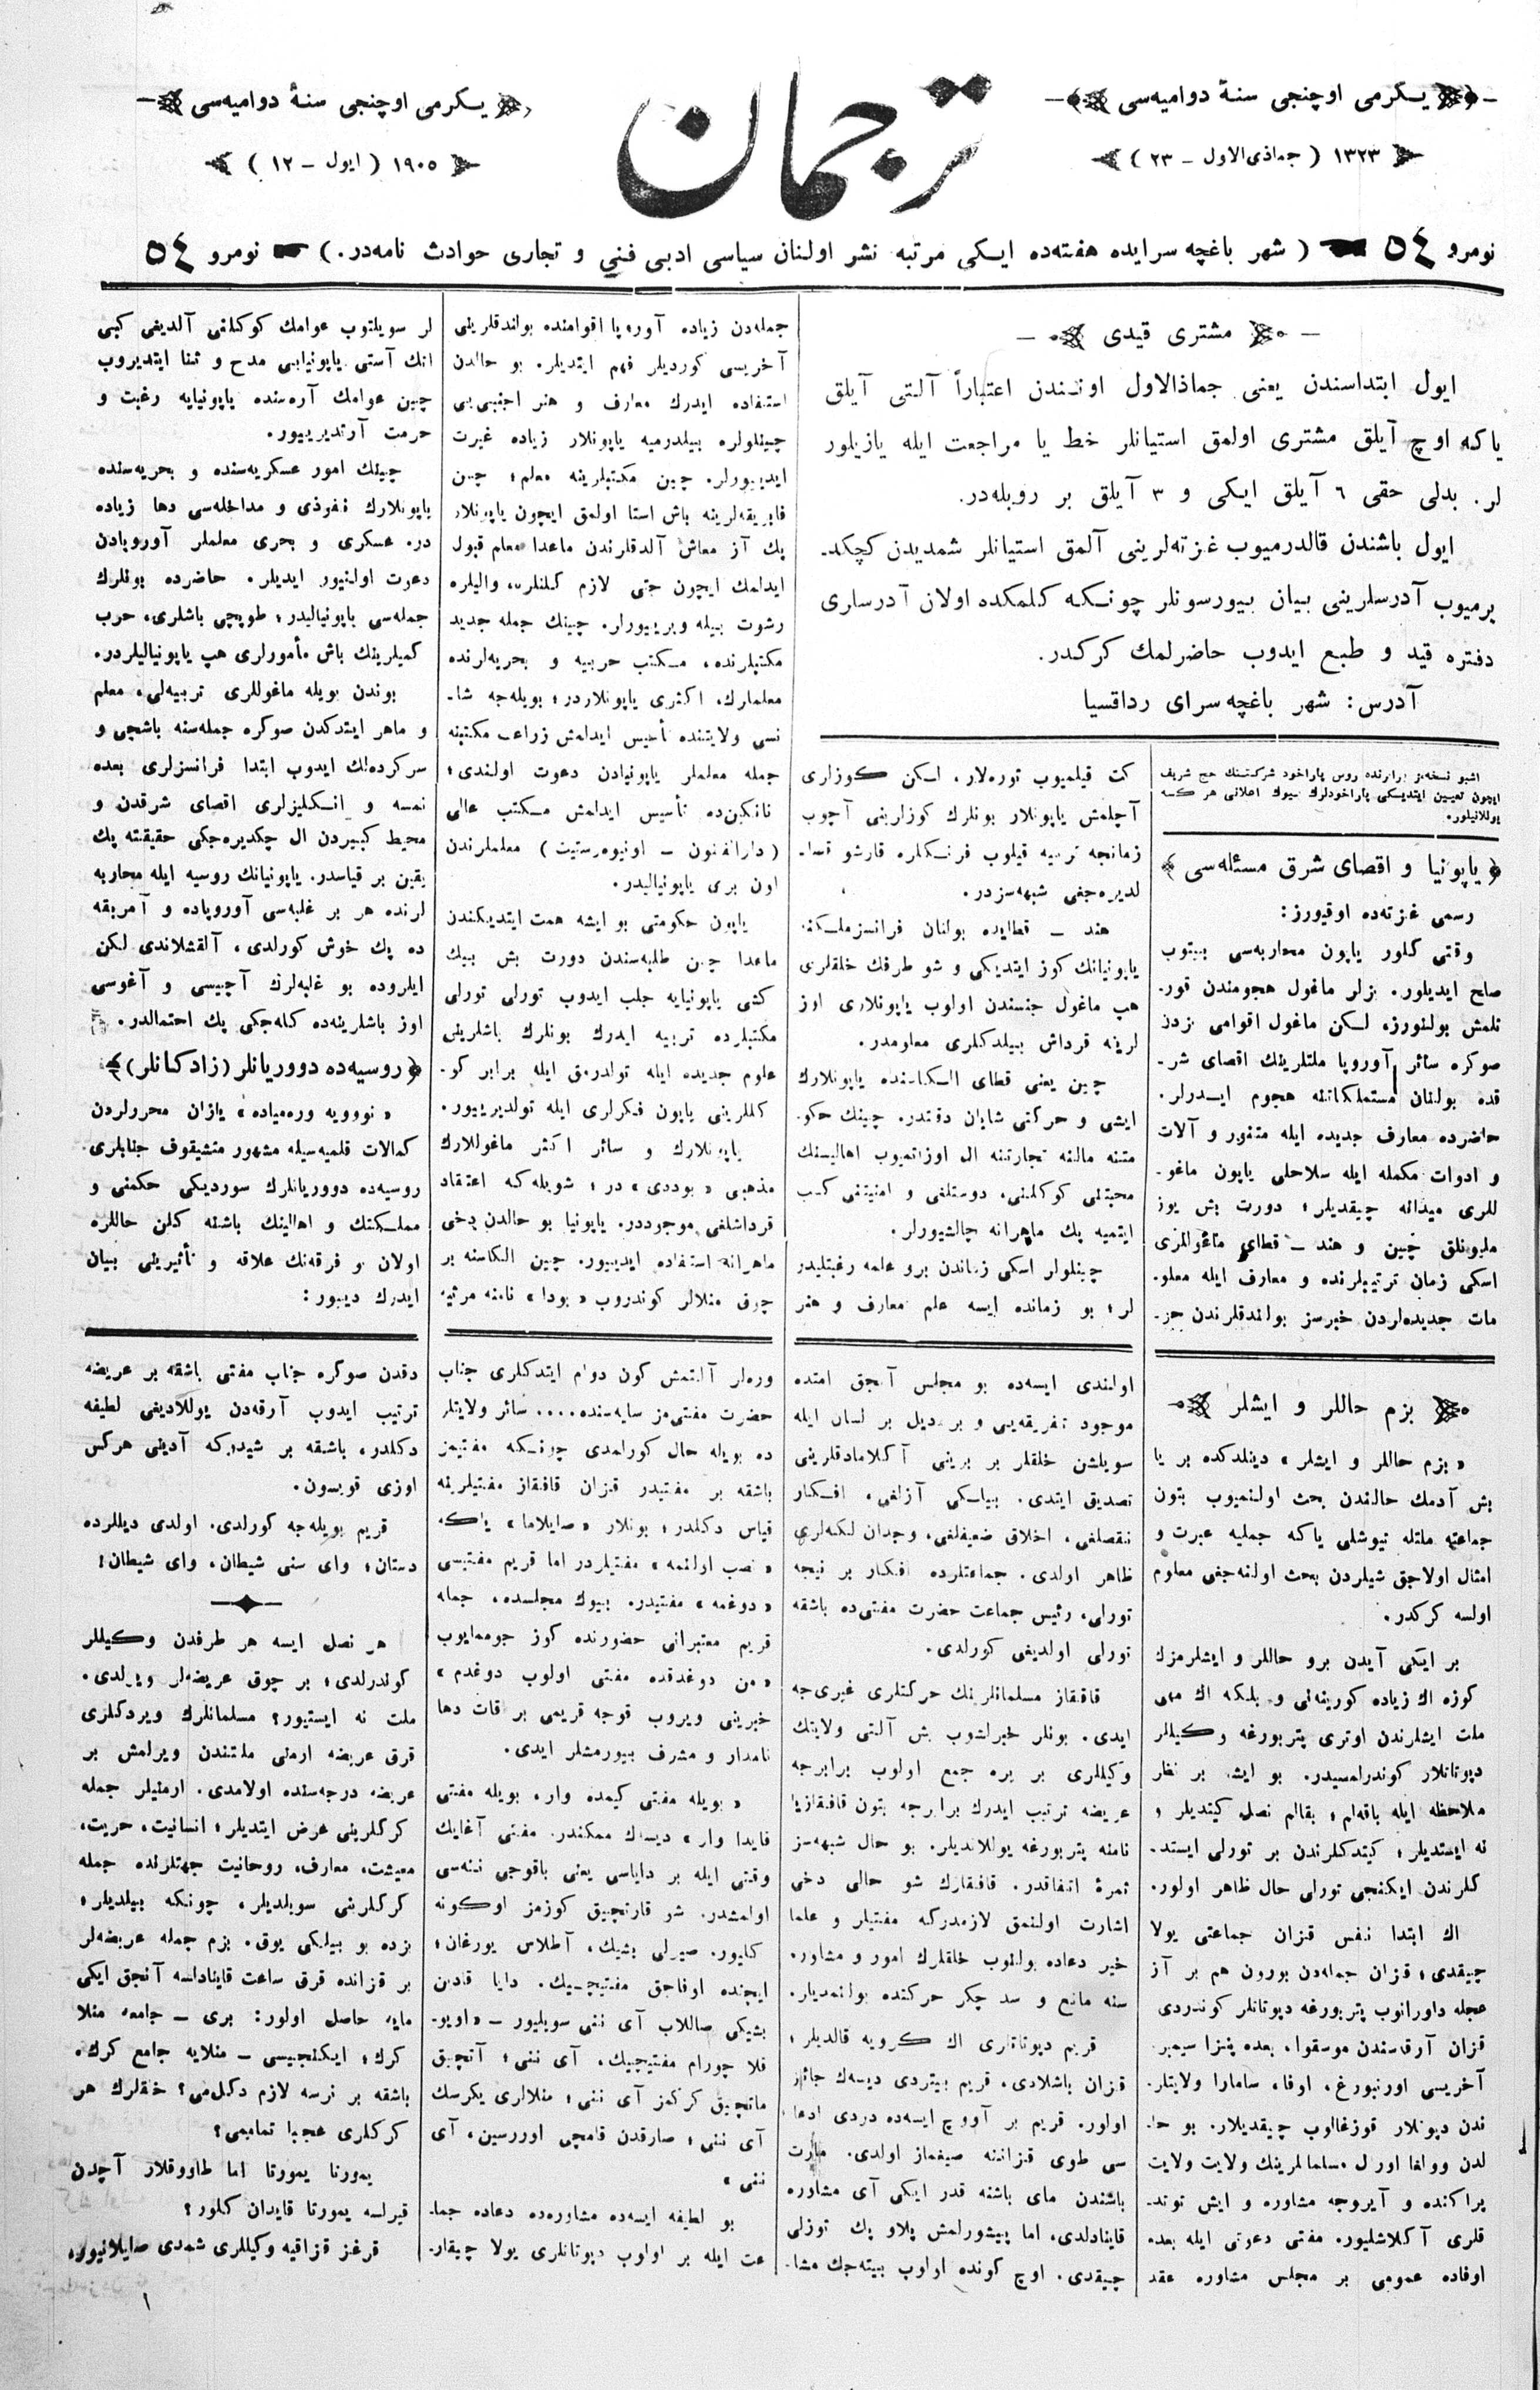 يكرمى اوچنجى سنۀ دواميه‌سى
١٣٢٣ ( جماذى‌الاول ـ ٢٣ )
ترجمان
يكرمى اوچنجى سنۀ دواميه‌سى
١٩٠٥ ( ايول ـ ١٢ )
نومرو ٥٤ ( شهر باغچه سرايده هفته‌ده ايكى مرتبه نشر اولنان سياسى ادبى فنى و تجارى حوادث نامه‌در. ) نومرو ٥٤
مشترى قيدى
ايول ابتداسندن يعنى جماذالاول اونـندن اعتباراً آلتى آيلق
ياكه اوچ آيلق مشترى اولمق استيانلر خط يا مراجعت ايله يازيلور
لر. بدلى حقى ٦ آيلق ايكى و ٣ آيلق بر روبله‌در.
ايول باشندن قالدرميوب غزته‌لرينى آلمق استيانلر شمديدن كچكد‍ـ
يرميوب آدرسلرينى بيان بيورسونلر چونكه كلمكده اولان آدرسلرى
دفتره قيد و طبع ايدوب حاضرلمك كركدر.
آدرس: شهر باغچه سراى رداقسيا
اشبو نسخه‌مز برابرنده روس پاراخود شركتنك حج شريف
ايچون تعيين ايتديكى پاراخودلرك بيوك اعلانى هر كسه
يوللانيلور.
﴿ ياپونيا و اقصاى شرق مسئله‌سى ﴾
رسمى غزته‌ده اوقيورز:
وقتى كلور ياپون محاربه‌سى بيتوب
صلح ايديلور. بزلر ماغول هجومندن قور‍ـ
تلمش بولنورز، لكن ماغول اقوامى بزدن
صوكره سائر آوروپا ملتلرينك اقصاى شر‍ـ
قده بولنان مستملكاتنه هجوم ايدرلر.
حاضرده معارف جديده ايله متنور و آلات
و ادوات مكمله ايله سلاحلى ياپون ماغو‍ـ
للرى ميدانه چيقديلر؛ دورت بش يوز
مليونلق چين و هند ـ قطاى ماغوللرى
اسكى زمان ترتيبلرنده و معارف ايله معلو‍ـ
مات جديده‌لردن خبرسز بولندقلرندن حر‍ـ
كت قيلميوب توره‌لار، اسكن كوزلرى
آچلمش ياپونلار بونلرك كوزلرينى آچوب
زمانجه تربيه قيلوب فرنكلره قارشو قسا‍ـ
لديره‌جغى شبهه‌سزدر.
هند ـ قطايده بولنان فرانسز ملكنه
ياپونيانك كوز ايتديكى و شو طرفك خلقلرى
هپ ماغول جنسندن اولوب ياپونلارى اوز
لرينه قرداش بيلدكلرى معلومدر.
چين يعنى قطاى الكاسنده ياپونلارك
ايشى و حركتى شايان دقتدر. چينك حكو‍ـ
متنه مالنه تجارتنه ال اوزاتميوب اهاليسنك
محبتنى كوكلنى، دوستلغى و امنيتنى كسب
ايتميه پك ماهرانه چالشيورلر.
چينلولر اسكى زماندن برو علمه رغبتليدر
لر؛ بو زمانده ايسه علم معارف و هنر
جمله‌دن زياده آوروپا اقوامنده بولندقلرينى
آخريسى كورديلر فهم ايتديلر. بو حالدن
استفاده ايدرك معارف و هنر اجنبيه‌يى
چينلولره بيلدرميه ياپونلار زياده غيرت
ايديورلر. چين مكتبلرينه معلم؛ چين
فابريقه‌لرينه باش استا اولمق ايچون ياپونلار
پك آز معاش آلدقلرندن ماعدا معلم قبول
ايدلمك ايچون حتى لازم كلنلره، واليلره
رشوت بيله ويرييورلر. چينك جمله جديد
مكتبلرنده، مكتب حربيه و بحريه‌لرنده
معلملرك اكثرى ياپونلاردر؛ بويله‌جه شا‍ـ
نسى ولايتنده تأسيس ايدلمش زراعت مكتبنه
جمله معلملر ياپونيادن دعوت اولندى؛
نانكين‌ده تأسيس ايدلمش مكتب عالى
( دارالفنون ـ اونيوه‌رستيت ) معلملرندن
اون برى ياپونياليدر.
ياپون حكومتى بو ايشه همت ايتديكندن
ماعدا چين طلبه‌سندن دورت بش بيك
كشى ياپونيايه جلب ايدوب تورلى تورلى
مكتبلرده تربيه ايدرك بونلرك باشلرينى
علوم جديده ايله تولدرمق ايله برابر كو‍ـ
كللرينى ياپون فكرلرى ايله تولديرييور.
ياپونلارك و سائر اكثر ماغوللارك
مذهبى «بوددى» در؛ شويله‌كه اعتقاد
قرداشلغى موجوددر. ياپونيا بو حالدن دخى
ماهرانه استفاده ايدييور. چين الكاسنه بر
چوق منلالر كوندروب «بودا» نامنه مرثيه
لر سويلتوب عوامك كوكلنى آلديغى كبى
انك آستى ياپونيايى مدح و ثنا ايتديروب
چين عوامك آره‌سنده ياپونيايه رغبت و
حرمت آرتديرييور.
چينك امور عسكريه‌سنده و بحريه‌سنده
ياپونلارك نفوذى و مداخله‌سى دها زياده
در. عسكرى و بحرى معلملر آوروپادن
دعوت اولنيور ايديلر. حاضرده بونلرك
جمله‌سى ياپونياليدر؛ طوپچى باشلرى، حرب
كميلرينك باش مأمورلرى هپ ياپونياليلردر.
بوندن بويله ماغوللرى تربيه‌لى، معلم
و ماهر ايتدكدن صوكره جمله‌سنه باشجى و
سركرده‌لك ايدوب ابتدا فرانسزلرى بعده
نمسه و انكليزلرى اقصاى شرقدن و
محيط كبيردن ال چكديره‌جكى حقيقته پك
يقين بر قياسدر. ياپونيانك روسيه ايله محاربه
لرنده هر بر غلبه‌سى آوروپاده و آمريقه
ده پك خوش كورلدى، آلقشلاندى لكن
ايلروده بو غلبه‌لرك آجيسى و آغوسى
اوز باشلرينه‌ده كله‌جكى پك احتمالدر.
﴿ روسيه‌ده دووريانلر (زادكانلر) ﴾
« نووويه وره‌مياده» يازان محررلردن
كمالات قلميه‌سيله مشهور منشيقوف جنابلرى.
روسيه‌ده دووريانلرك سورديكى حكمنى و
مملكتك و اهالينك باشنه كلن حاللره
اولان بو فرقه‌نك علاقه و تأثيرينى بيان
ايدرك دييور:
بزم حاللر و ايشلر
« بزم حاللر و ايشلر » دينلدكده بر يا
بش آدمك حالندن بحث اولنميوب بتون
جماعته ملتله تيوشلى ياكه جمليه عبرت و
امثال اولاجق شيلردن بحث اولنه‌جغى معلوم
اولسه كركدر.
بر ايكى آيدن برو حاللر و ايشلرمزك
كوزه اك زياده كورينه‌نى و بلكه اك مهمى
ملت ايشلرندن اوترى پتربورغه وكيللر
دپوتاتلار كوندرلمسيدر. بو ايشه بر نظر
ملاحظه ايله باقه‌لم؛ بقالم نصل كيتديلر؛
نه ايستديلر؛ كيتدكلرندن بر تورلى ايستد‍ـ
كلرندن ايكنجى تورلى حال ظاهر اولور.
اك ابتدا نفس قزان جماعتى يولا
چيقدى؛ قزان جمله‌دن بورون هم بر آز
عجله داورانوب پتربورغه دپوتاتلر كوندردى
قزان آرقاسندن موسقوا، بعده پنزا سيمبر
آخريسى اورنبورغ، اوفا، سامارا ولايتلر‍ـ
ندن دپوتلار قوزغالوب چيقديلار. بو حا‍ـ
لدن وولغا اورال مسلمانلرينك ولايت ولايت
پراكنده و آيروجه مشاوره و ايش توتد‍ـ
قلرى آكلاشليور. مفتى دعوتى ايله بعده
اوفاده عمومى بر مجلس مشاوره عقد
اولندى ايسه‌ده بو مجلس آنجق امتده
موجود تفريقه‌يى و بر ديل بر لسان ايله
سويلشن خلقلر بر برينى آكلامادقلرينى
تصديق ايتدى. بيلكى آزلغى، افكار
نقصلغى، اخلاق ضعيفلغى، وجدان لكه‌لرى
ظاهر اولدى. جماعتلرده افكار بر نيجه
تورلى، رئيس جماعت حضرت مفتى‌ده باشقه
تورلى اولديغى كورلدى.
قافقاز مسلمانلرينك حركتلرى غيرى‌جه
ايدى. بونلر خبرلشوب بش آلتى ولايتك
وكيللرى بر يره جمع اولوب برابرجه
عريضه ترتيب ايدرك برابرجه بتون قافقازيا
نامنه پتربورغه يوللانديلر. بو حال شبهه‌سز
ثمرۀ اتفاقدر. قافقازك شو حالى دخى
اشارت اولنمق لازمدركه مفتيلر و علما
خير دعاده بولنوب خلقلرك امور و مشاور‍ـ
سنه مانع و سد چكر حركتده بولنمديلر.
قريم دپوتاتلرى اك كرويه قالديلر؛
قزان باشلادى، قريم بيتردى ديسه‌ك جائز
اولور. قريم بر آووچ ايسه‌ده دردى ادعا
سى طوى قزاننه صيغماز اولدى. مارت
باشندن ماى باشنه قدر ايكى آى مشاوره
قاينادلدى، اما پيشورلمش پلاو پك توزلى
چيقدى. اوچ كونده اولوب بيته‌جك مشا‍ـ
وره‌لر آلتمش كون دوام ايتدكلرى جناب
حضرت مفتى‌مز سايه‌سنده.... سائر ولايتلر
ده بويله حال كورلمدى چونكه مفتيمز
باشقه بر مفتيدر قزان قافقاز مفتيلرينه
قياس دكلدر؛ بونلار «صايلاما» ياكه
« نصب اولنمه » مفتيلردر اما قريم مفتيسى
« دوغمه » مفتيدر. بيوك مجلسده، جمله
قريم معتبرانى حضورنده كوز جومميوب
« من دوغدقده مفتى اولوب دوغدم »
خبرينى ويروب قوجه قريمى بر قات دها
نامدار و مشرف بيورمشلر ايدى.
« بويله مفتى كيمده وار، بويله مفتى
قايدا وار » ديسك ممكندر. مفتى آغايك
وقتى ايله بر داياسى يعنى باقوجى ننه‌سى
اولمشدر. شو قارتچيق كوزمز اوكونه
كليور. صيرلى بشيك، آطلاس يورغان؛
ايچنده اوفاجق مفتيچيك. دايا قادين
بشيكى صاللاب آى ننى سويليور ـ « اويو‍ـ
قلا چورام مفتيچيك، آى ننى؛ آتچيق
ماتچيق كركمز آى ننى؛ منلالرى يكرسك
آى ننى؛ صارقدن قامچى اوررسين، آى
ننى »
بو لطيفه ايسه‌ده مشاوره‌ده دعاده جما‍ـ
عت ايله بر اولوب دپوتاتلرى يولا چيقار‍ـ
دقدن صوكره جناب مفتى باشقه بر عريضه
ترتيب ايدوب آرقه‌دن يوللاديغى لطيفه
دكلدر، باشقه بر شيدركه آدينى هركس
اوزى قويسون.
قريم بويله‌جه كورلدى. اولدى ديللرده
دستان؛ واى سنى شيطان، واى شيطان!
هر نصل ايسه هر طرفدن وكيللر
كوندرلدى؛ بر چوق عريضه‌لر ويرلدى.
ملت نه ايستيور؟ مسلمانلرك ويردكلرى
قرق عريضه ارمنى ملتندن ويرلمش بر
عريضه درجه‌سنده اولامدى. ارمنيلر جمله
كركلرينى عرض ايتديلر؛ انسانيت، حريت،
معيشت، معارف، روحانيت جهتلرنده جمله
كركلرينى سويلديلر، چونكه بيلديلر؛
بزده بو بيلكى يوق. بزم جمله عريضه‌لر
بر قزانده قرق ساعت قاينادلسه آنجق ايكى
مايه حاصل اولور: برى ـ جامعه منلا
كرك؛ ايكنجيسى ـ منلايه جامع كرك.
باشقه بر نرسه لازم دكل‌مى؟ خلقلرك هر
كركلرى عجبا تماميمى؟
يمورتا يمورتا اما طاووقلار آچدن
قيرلسه يمورتا قايدان كلور؟
قرغز قزاقيه وكيللرى شمدى صايلانيور.
١